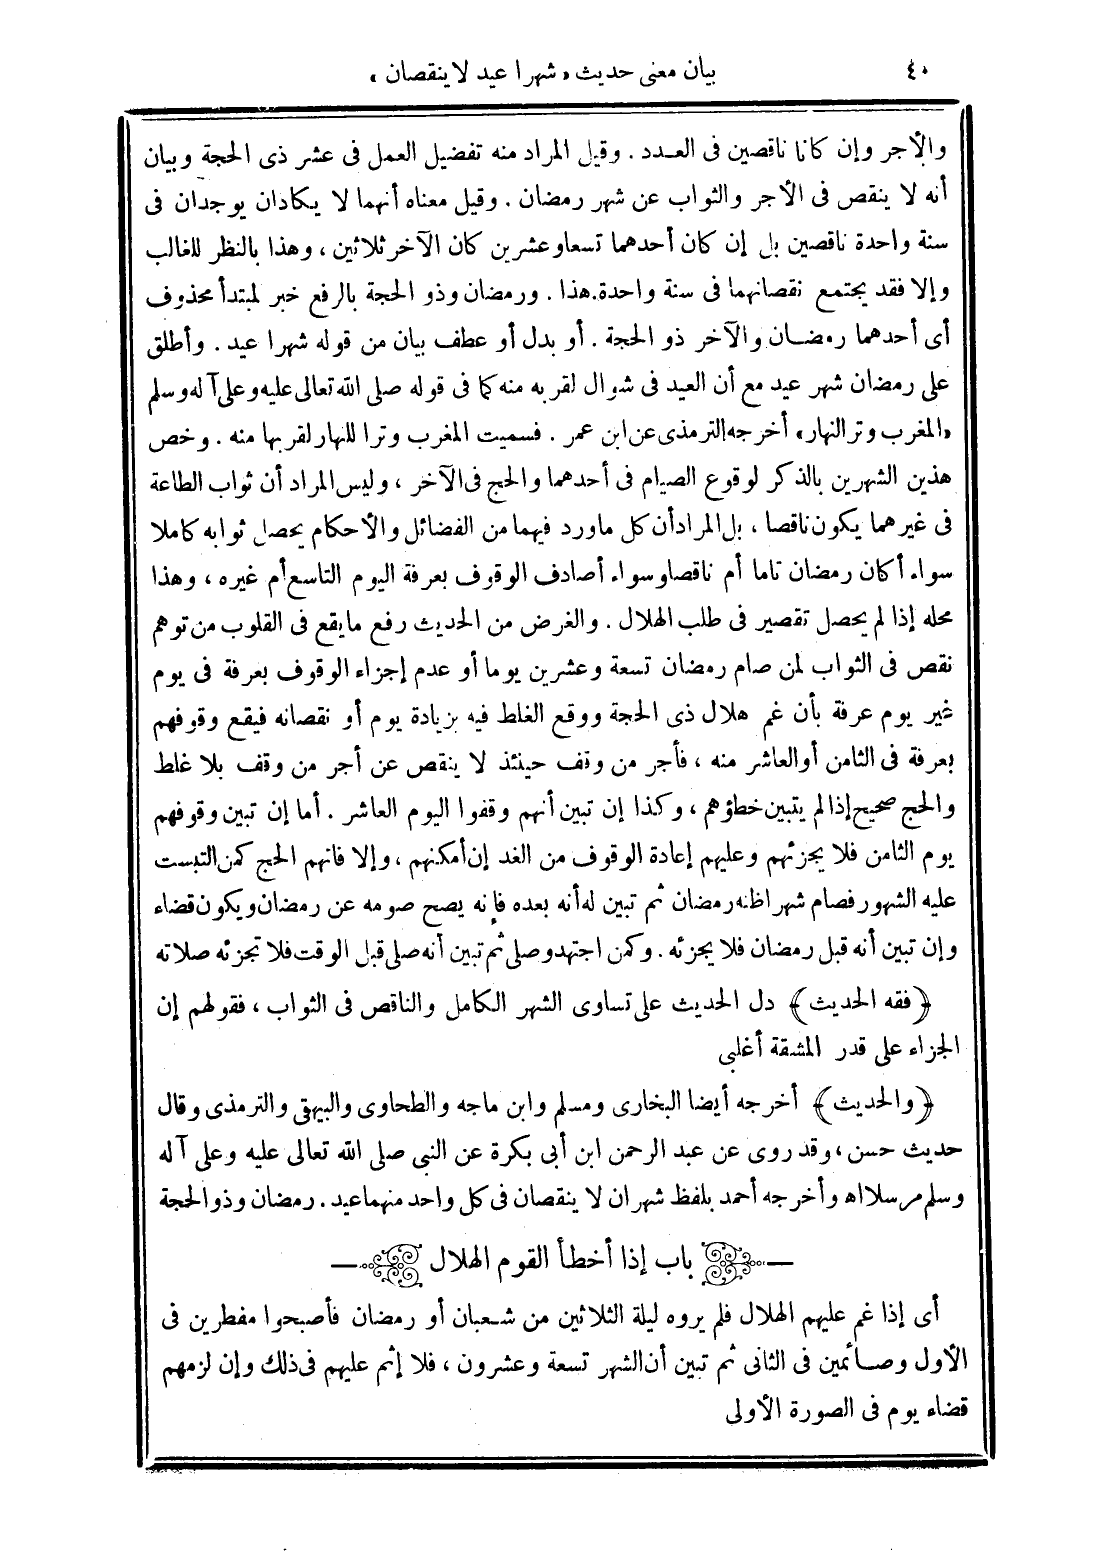 ٤٠ بيان معنى حديث «شهرا عيد لا ينقصان»
والأجر وإن كانا ناقصين فى العدد . وقيل المراد منه تفضيل العمل فى عشر ذى الحجة وبيان
أنه لا ينقص فى الأجر والثواب عن شهر رمضان . وقيل معناه أنهما لا يكادان يوجدان فى
سنة واحدة ناقصين بل إن كان أحدهما تسعا وعشرين كان الآخر ثلاثين ، وهذا بالنظر للغالب
وإلا فقد يجتمع نقصانهما فى سنة واحدة. هذا . ورمضان وذو الحجة بالرفع خبر لمبتدأ محذوف
أى أحدهما رمضان والآخر ذو الحجة . أو بدل أو عطف بيان من قوله شهرا عيد . وأطلق
على رمضان شهر عيد مع أن العيد فى شوال لقربه منه كما فى قوله صلى الله تعالى عليه وعلى آله وسلم
«المغرب وتر النهار» أخرجه الترمذى عن ابن عمر . فسميت المغرب وترا للنهار لقربها منه . وخص
هذين الشهرين بالذكر لوقوع الصيام فى أحدهما والحج فى الآخر ، وليس المراد أن ثواب الطاعة
فى غيرهما يكون ناقصا ، بل المراد أن كل ما ورد فيهما من الفضائل والأحكام يحصل ثوابه كاملا
سواء أكان رمضان تاما أم ناقصا وسواء أصادف الوقوف بعرفة اليوم التاسع أم غيره ، وهذا
محله إذا لم يحصل تقصير فى طلب الهلال . والغرض من الحديث رفع ما يقع فى القلوب من توهم
نقص فى الثواب لمن صام رمضان تسعة وعشرين يوما أو عدم إجزاء الوقوف بعرفة فى يوم
غير يوم عرفة بأن غم هلال ذى الحجة ووقع الغلط فيه بزيادة يوم أو نقصانه فيقع وقوفهم
بعرفة فى الثامن أو العاشر منه ، فأجر من وقف حينئذ لا ينقص عن أجر من وقف بلا غلط
والحج صحيح إذا لم يتبين خطؤهم ، وكذا إن تبين أنهم وقفوا اليوم العاشر . أما إن تبين وقوفهم
يوم الثامن فلا يجزئهم وعليهم إعادة الوقوف من الغد إن أمكنهم ، وإلا فاتهم الحج كمن التبست
عليه الشهور فصام شهرا ظنه رمضان ثم تبين له أنه بعده فإنه يصح صومه عن رمضان ويكون قضاء
وإن تبين أنه قبل رمضان فلا يجزئه . وكمن اجتهد وصلى ثم تبين أنه صلى قبل الوقت فلا تجزئه صلاته
﴿فقه الحديث﴾ دل الحديث على تساوى الشهر الكامل والناقص فى الثواب ، فقولهم إن
الجزاء على قدر المشقة أغلبى
﴿والحديث﴾ أخرجه أيضا البخارى ومسلم وابن ماجه والطحاوى والبيهقى والترمذى وقال
حديث حسن ، وقد روى عن عبد الرحمن ابن أبى بكرة عن النبى صلى الله تعالى عليه وعلى آله
وسلم مرسلا اه وأخرجه أحمد بلفظ شهران لا ينقصان فى كل واحد منهما عيد . رمضان وذو الحجة
باب إذا أخطأ القوم الهلال
أى إذا غم عليهم الهلال فلم يروه ليلة الثلاثين من شعبان أو رمضان فأصبحوا مفطرين فى
الأول وصائمين فى الثانى ثم تبين أن الشهر تسعة وعشرون ، فلا إثم عليهم فى ذلك وإن لزمهم
قضاء يوم فى الصورة الأولى